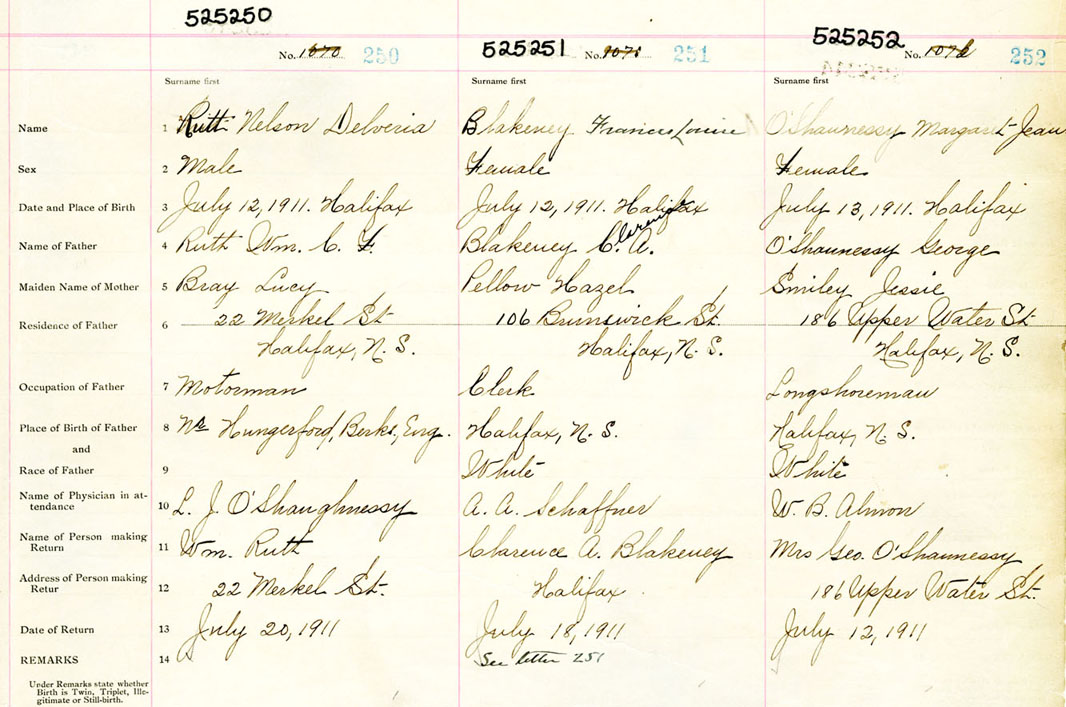 525250 525251 525252
No. 1070 250 No. 1071 251 No. 1072 252
Surname first Surname first Surname first
Name 1 Ruth Nelson Delveria Blakeney Frances Louise O'Shaunnessy Margaret Jean
Sex 2 Male Female Female
Date and Place of Birth 3 July 12, 1911. Halifax July 12, 1911. Halifax July 13, 1911. Halifax
Clarence
Name of Father 4 Ruth Wm. C. F. Blakeney C. A. O'Shaunnessy George
Maiden Name of Mother 5 Bray Lucy Pellow Hazel Smiley Jessie
Residence of Father 6 22 Merkel St 106 Brunswick St. 186 Upper Water St.
Halifax, N. S. Halifax, N. S. Halifax, N. S.
Occupation of Father 7 Motorman Clerk Longshoreman
Place of Birth of Father 8 Nr Hungerford, Berks, Eng. Halifax, N. S. Halifax, N. S.
and
Race of Father 9 White White
Name of Physician in at-
tendance 10 L. J. O'Shaughnessy A. A. Schaffner W. B. Almon
Name of Person making
Return 11 Wm. Ruth Clarence A. Blakeney Mrs Geo. O'Shaunnessy
Address of Person making
Retur 12 22 Merkel St. Halifax 186 Upper Water St.
Date of Return 13 July 20, 1911 July 18, 1911 July 12, 1911
REMARKS 14 See letter 251
Under Remarks state whether
Birth is Twin, Triplet, Ille-
gitimate or Still-birth.